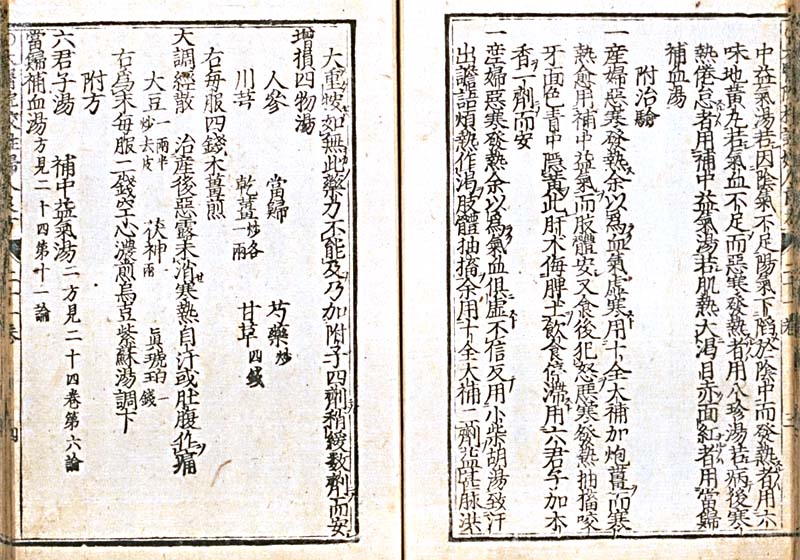 中益氣湯若因陰氣不足陽氣下陷於陰中而發熱者用六
味地黃丸若氣血不足而惡寒發熱者用八珍湯若病後寒
熱倦怠者用補中益氣湯若肌熱大渴目赤面紅者用當歸
補血湯
附治驗
一産婦惡寒發熱余以爲血氣虛寒用十全大補加炮薑而寒
熱愈用補中益氣而肢體安又食後犯怒惡寒發熱抽搐咬
牙面色青中隱黃此肝木侮脾土飲食停滯用六君子加木
香一劑而安
一産婦惡寒發熱余以爲氣血俱虛不信反用小柴胡湯致汗
出譫語煩熱作渴肢體抽搐余用十全大補二劑益甚脉洪
大重按如無此藥力不能及乃加附子四劑稍緩數劑而安
增損四物湯
人參 當歸 芍藥炒
川芎 乾薑炒各一兩 甘草四錢
右每服四錢水薑煎
大調經散 治産後惡露未消寒熱自汗或肚腹作痛
大豆一兩半炒去皮 茯神一兩 眞琥珀一錢
右爲末每服二錢空心濃煎烏豆紫蘇湯調下
附方
六君子湯 補中益氣湯二方見二十四卷第六論
當歸補血湯方見二十四第十一論